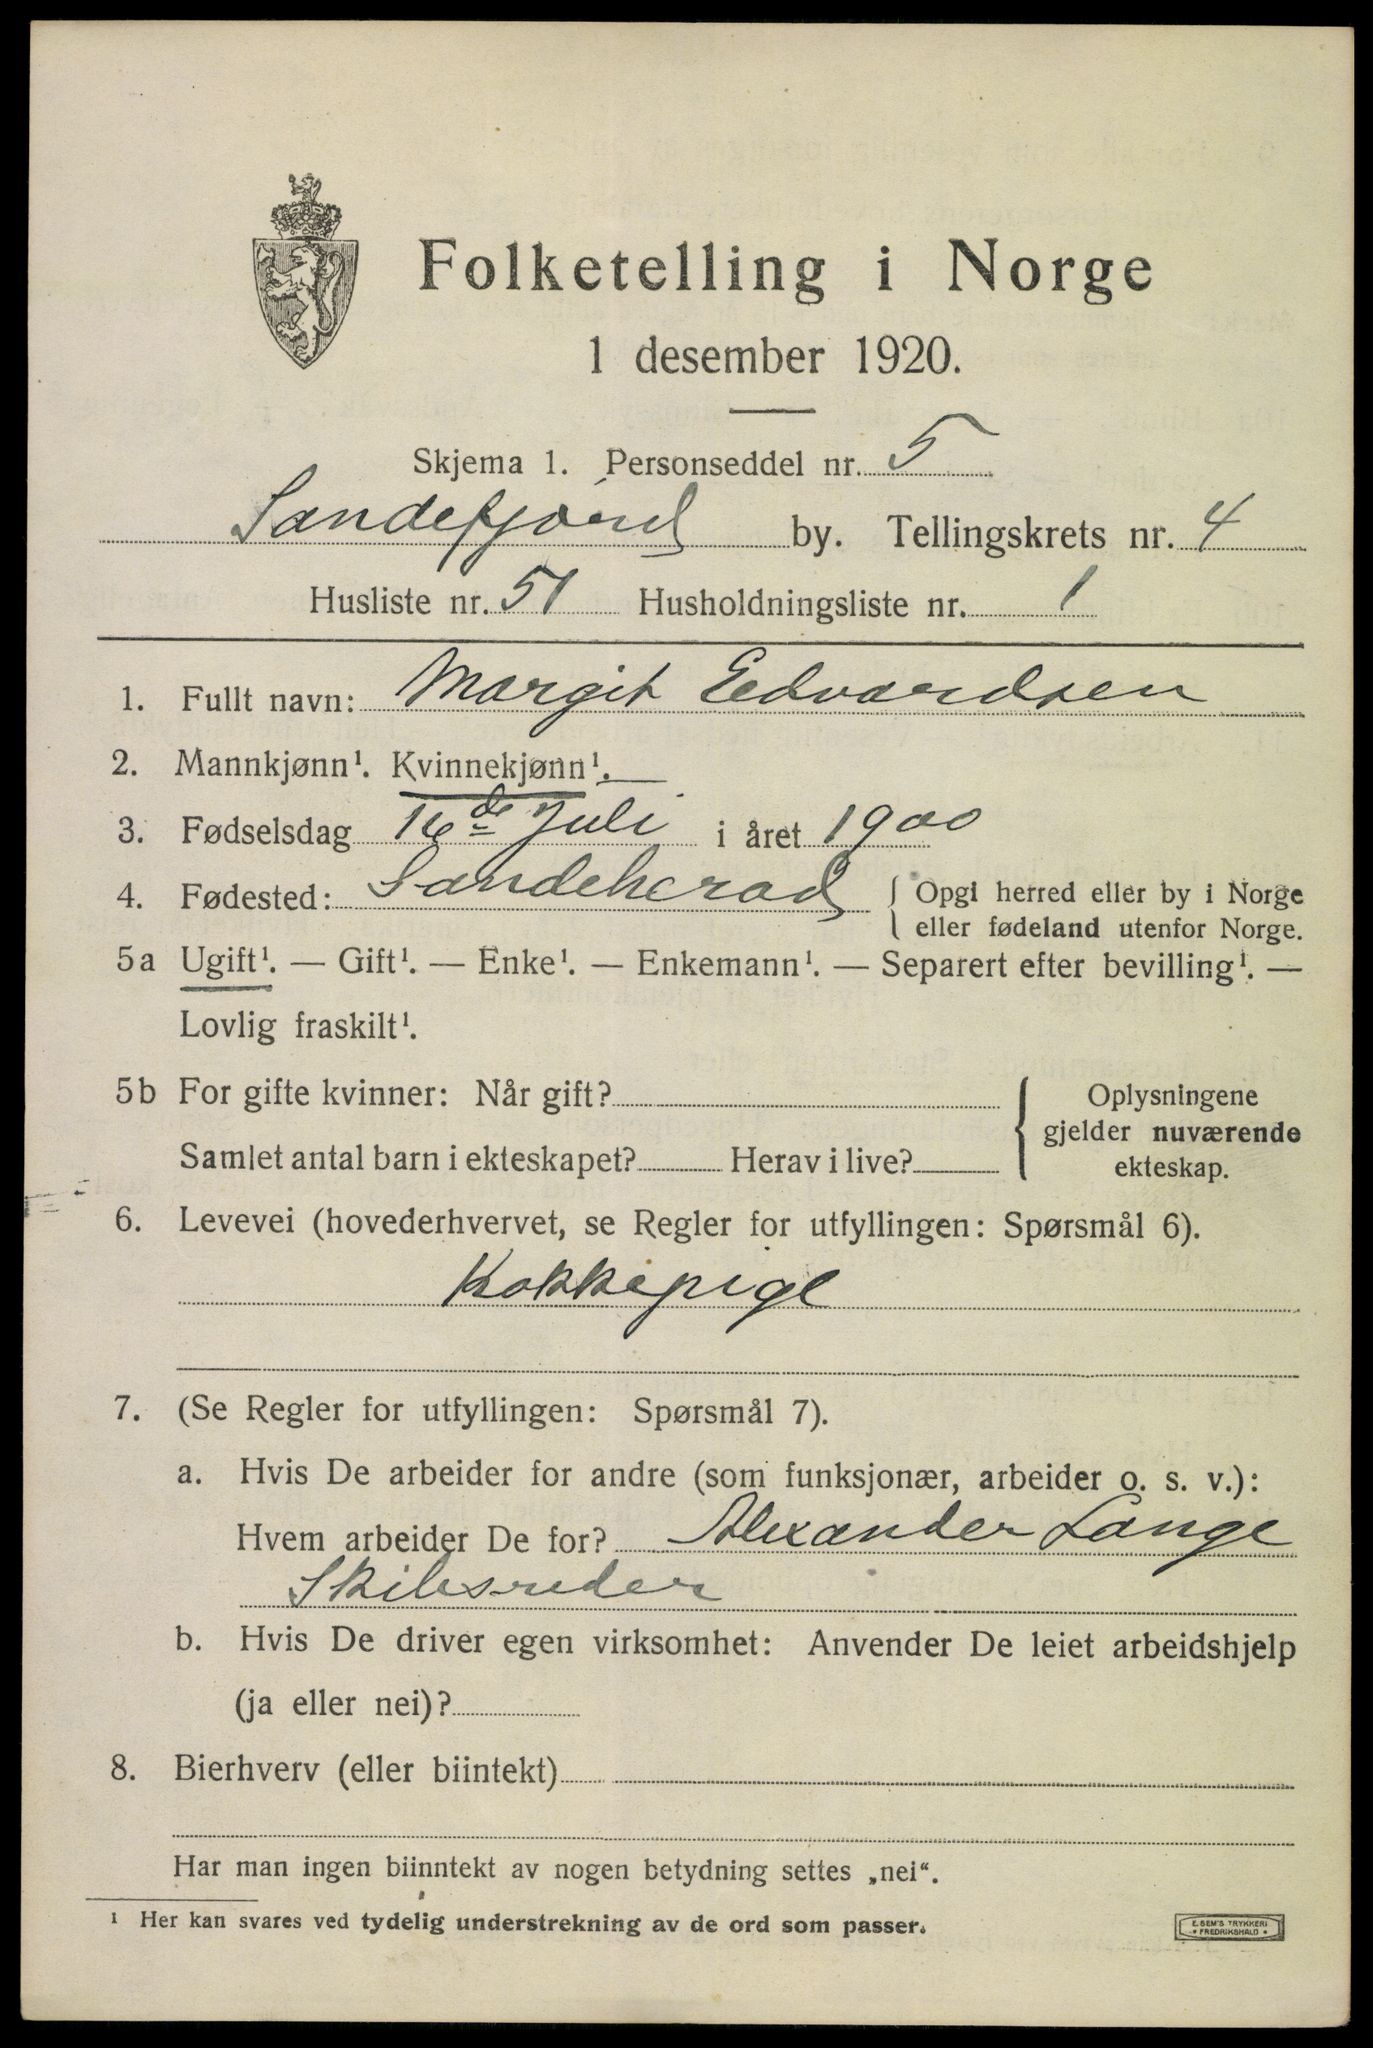 Folketelling i Norge
1 desember 1920.
Skjema 1. Personseddel nr. 5
Sandefjord by. Tellingskrets nr. 4
Husliste nr. 51 Husholdningsliste nr. 1
1. Fullt navn: Margit Edvardsen
2. Mannkjønn¹. Kvinnekjønn¹.
3. Fødselsdag 16de Juli i året 1900
4. Fødested: Sandeherad { Opgi herred eller by i Norge
eller fødeland utenfor Norge.
5a Ugift¹. — Gift¹. — Enke¹. — Enkemann¹. — Separert efter bevilling¹. —
Lovlig fraskilt¹.
5b For gifte kvinner: Når gift?
Samlet antal barn i ekteskapet? Herav i live?
{ Oplysningene
gjelder nuværende
ekteskap.
6. Levevei (hovederhvervet, se Regler for utfyllingen: Spørsmål 6).
Kokkepige
7. (Se Regler for utfyllingen: Spørsmål 7).
a. Hvis De arbeider for andre (som funksjonær, arbeider o. s. v.):
Hvem arbeider De for? Alexander Lange
Skibsreder
b. Hvis De driver egen virksomhet: Anvender De leiet arbeidshjelp
(ja eller nei)?
8. Bierhverv (eller biintekt)
Har man ingen biinntekt av nogen betydning settes „nei“.
¹ Her kan svares ved tydelig understrekning av de ord som passer.
E. SEM'S TRYKKERI
* FREDRIKSHALD *